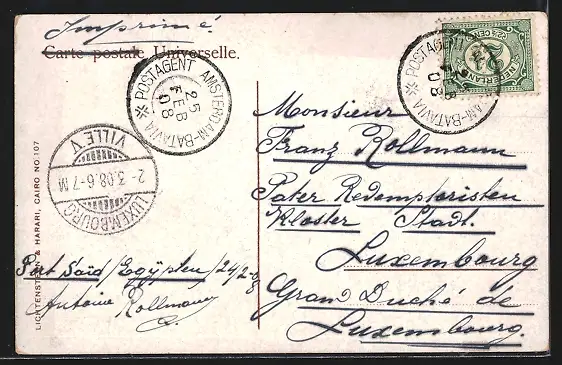 Imprimé
Carte postale Universelle.
POSTAGENT AMSTERDAM-BATAVIA
25
FEB
08
POSTAGENT AMSTERDAM-BATAVIA
FEB
08
NEDERLAND
2½ CENT
LUXEMBOURG VILLE V.
2-3.08.6-7M
Monsieur
Franz Rollmann
Pater Redemptoristen
Kloster Stadt.
Luxembourg
Grand Duché de
Luxembourg.
Port Saïd/Egypten/24/2-08
Antoine Rollmann
LICHTENSTERN & HARARI, CAIRO No. 107